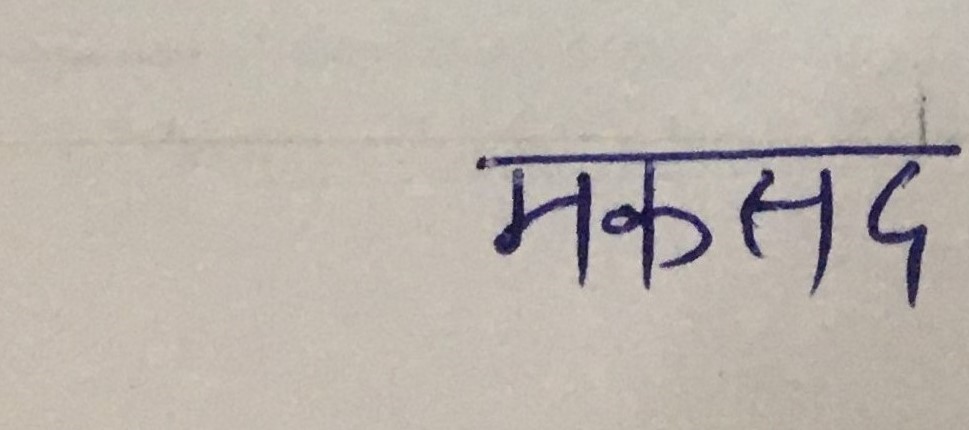 मकसद